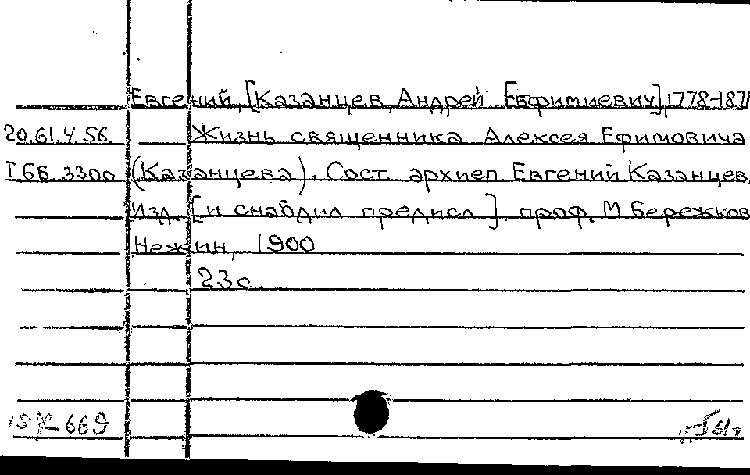 Евгений, [Казанцев Андрей Евфимиевич], 1778-187
20.61.4.56. Жизнь священника Алексея Ефимовича
(Казанцева). Сост. архиеп Евгений Казанцев.
Изд. [и снабдил предисл.] проф. М Бережков
Нежин, 1900
23с.
669